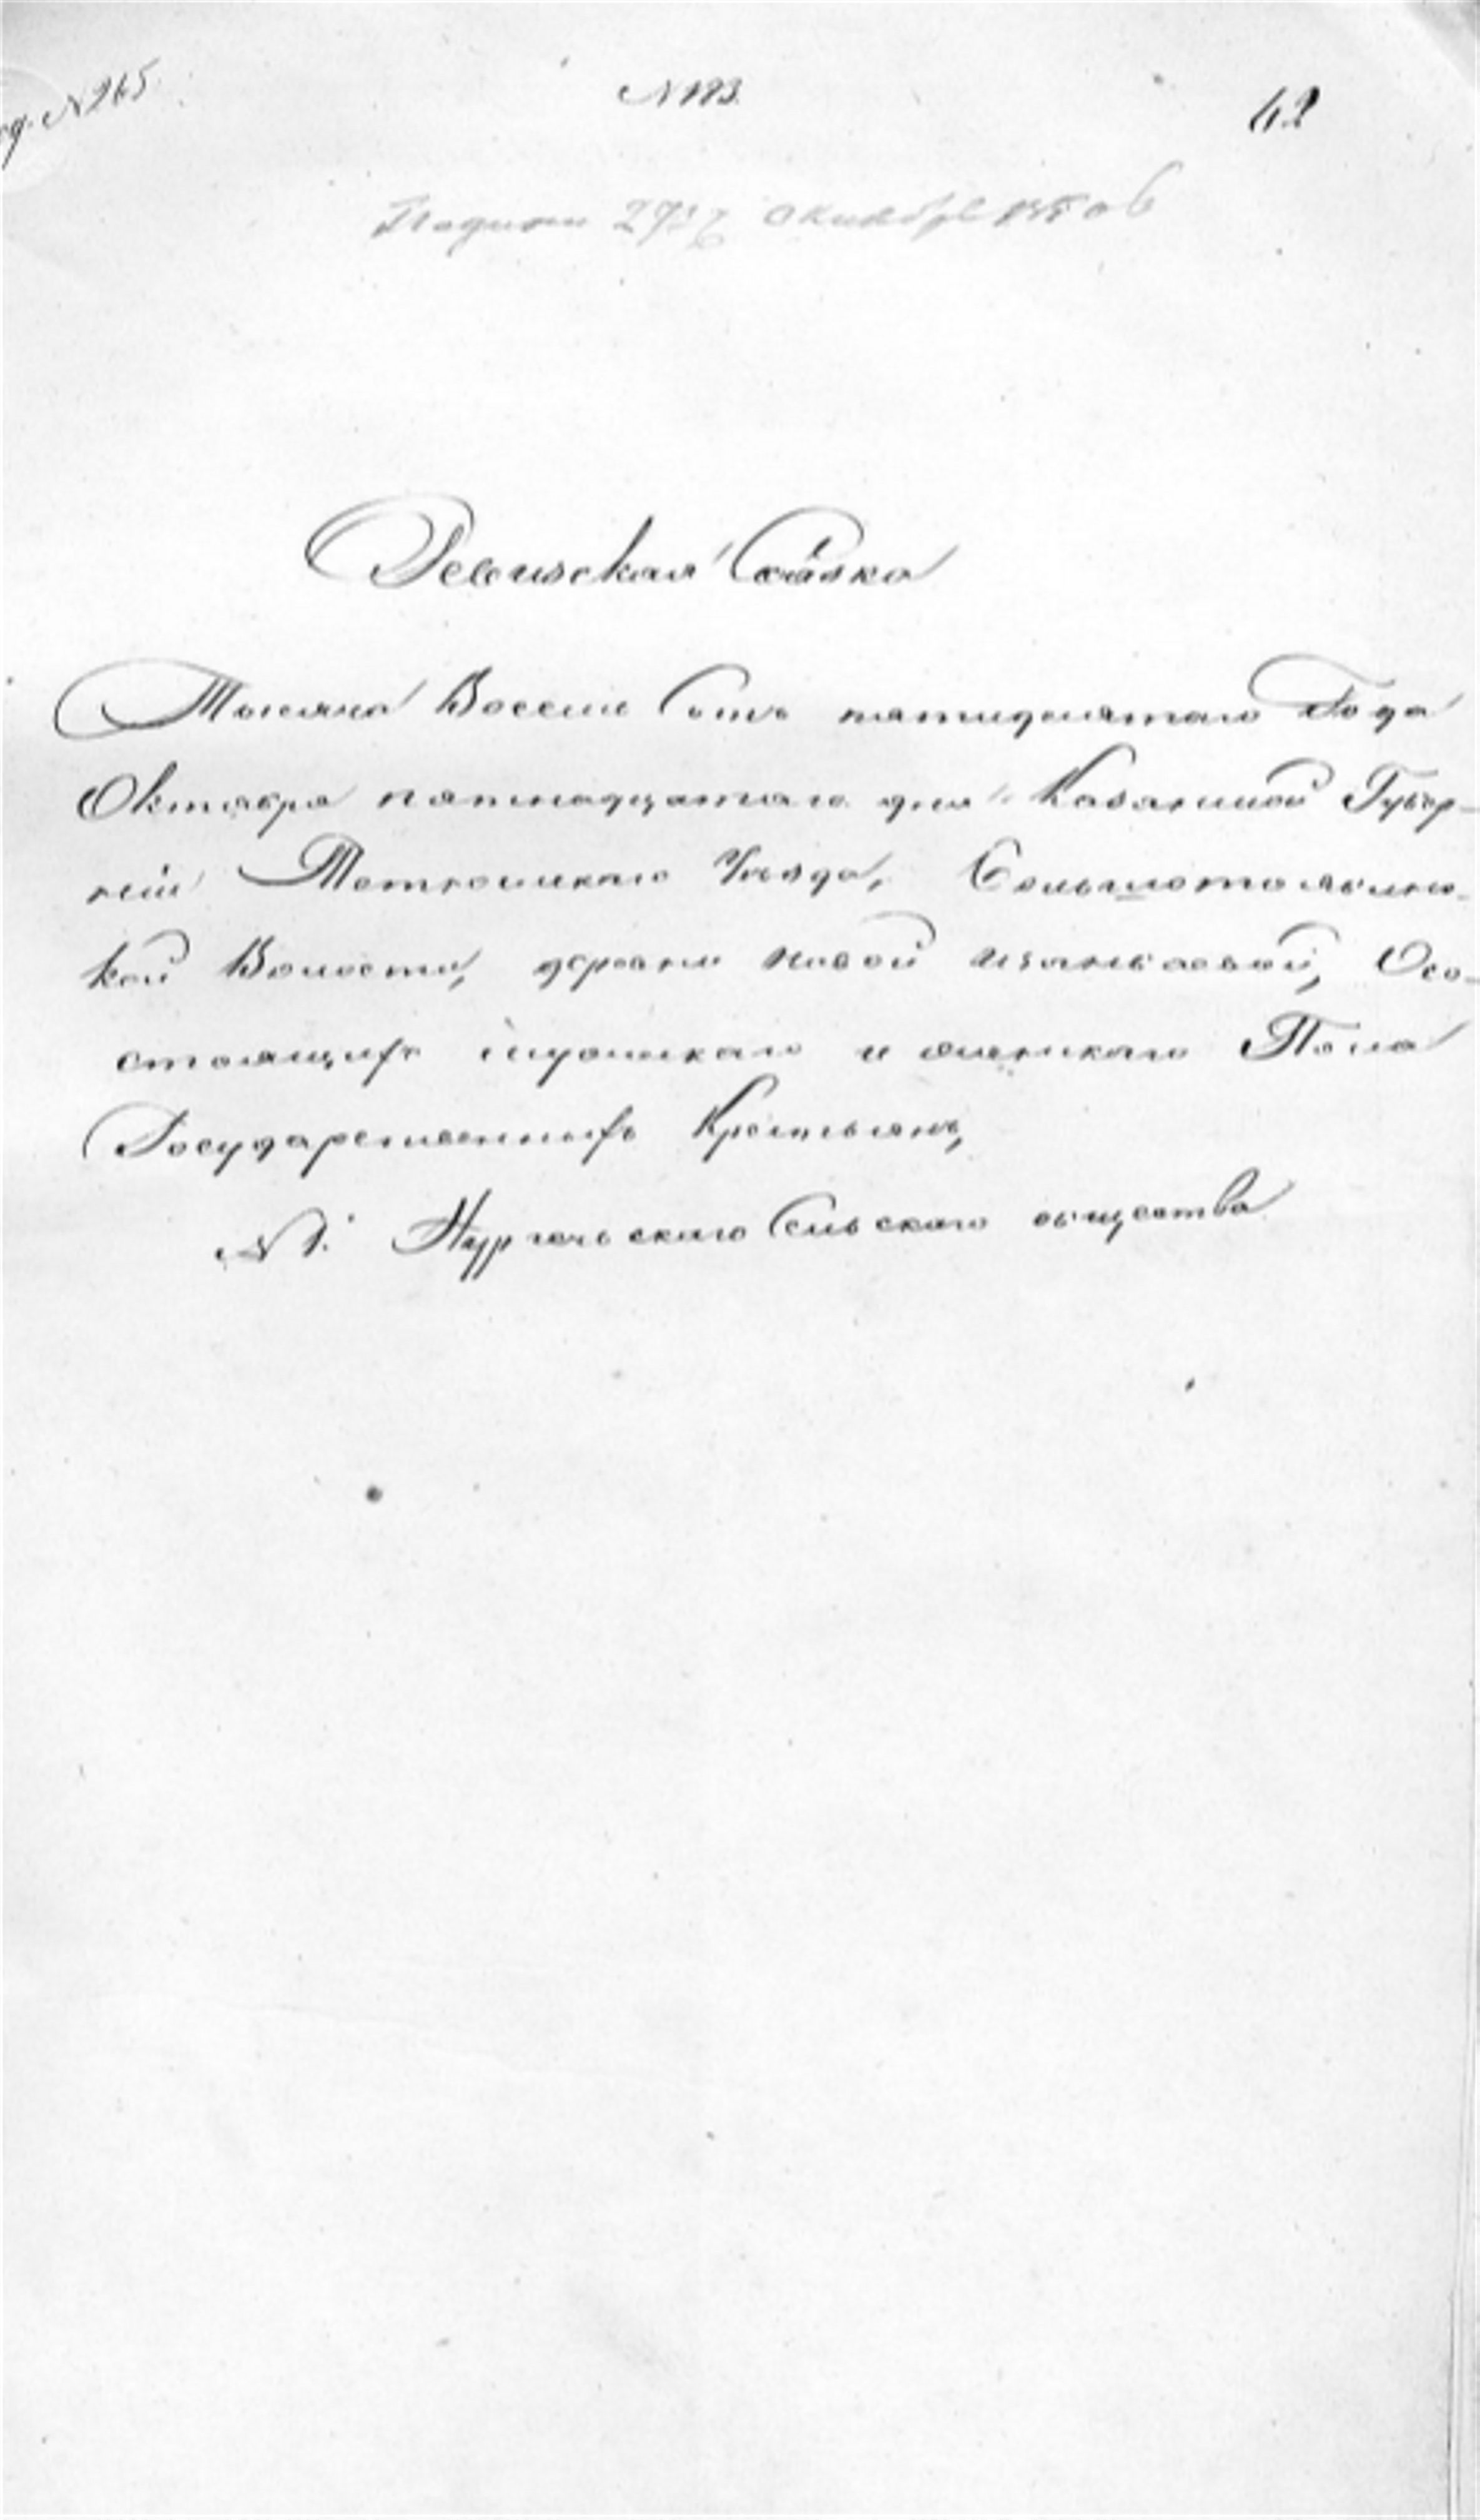 № 265
№ 193.
42
Октября
Ревизская Сказка
Тысяча Восемь Сотъ пятидесятаго Года
Октября пятнадцатаго дня Казанской Губер-
нiи Тетюшскаго Уѣзда,
кой Волости, деревни Новой О со-
стоящихъ мужскаго и женскаго Пола
Государственныхъ Крестьянъ,
№ 1. Сельскаго общества